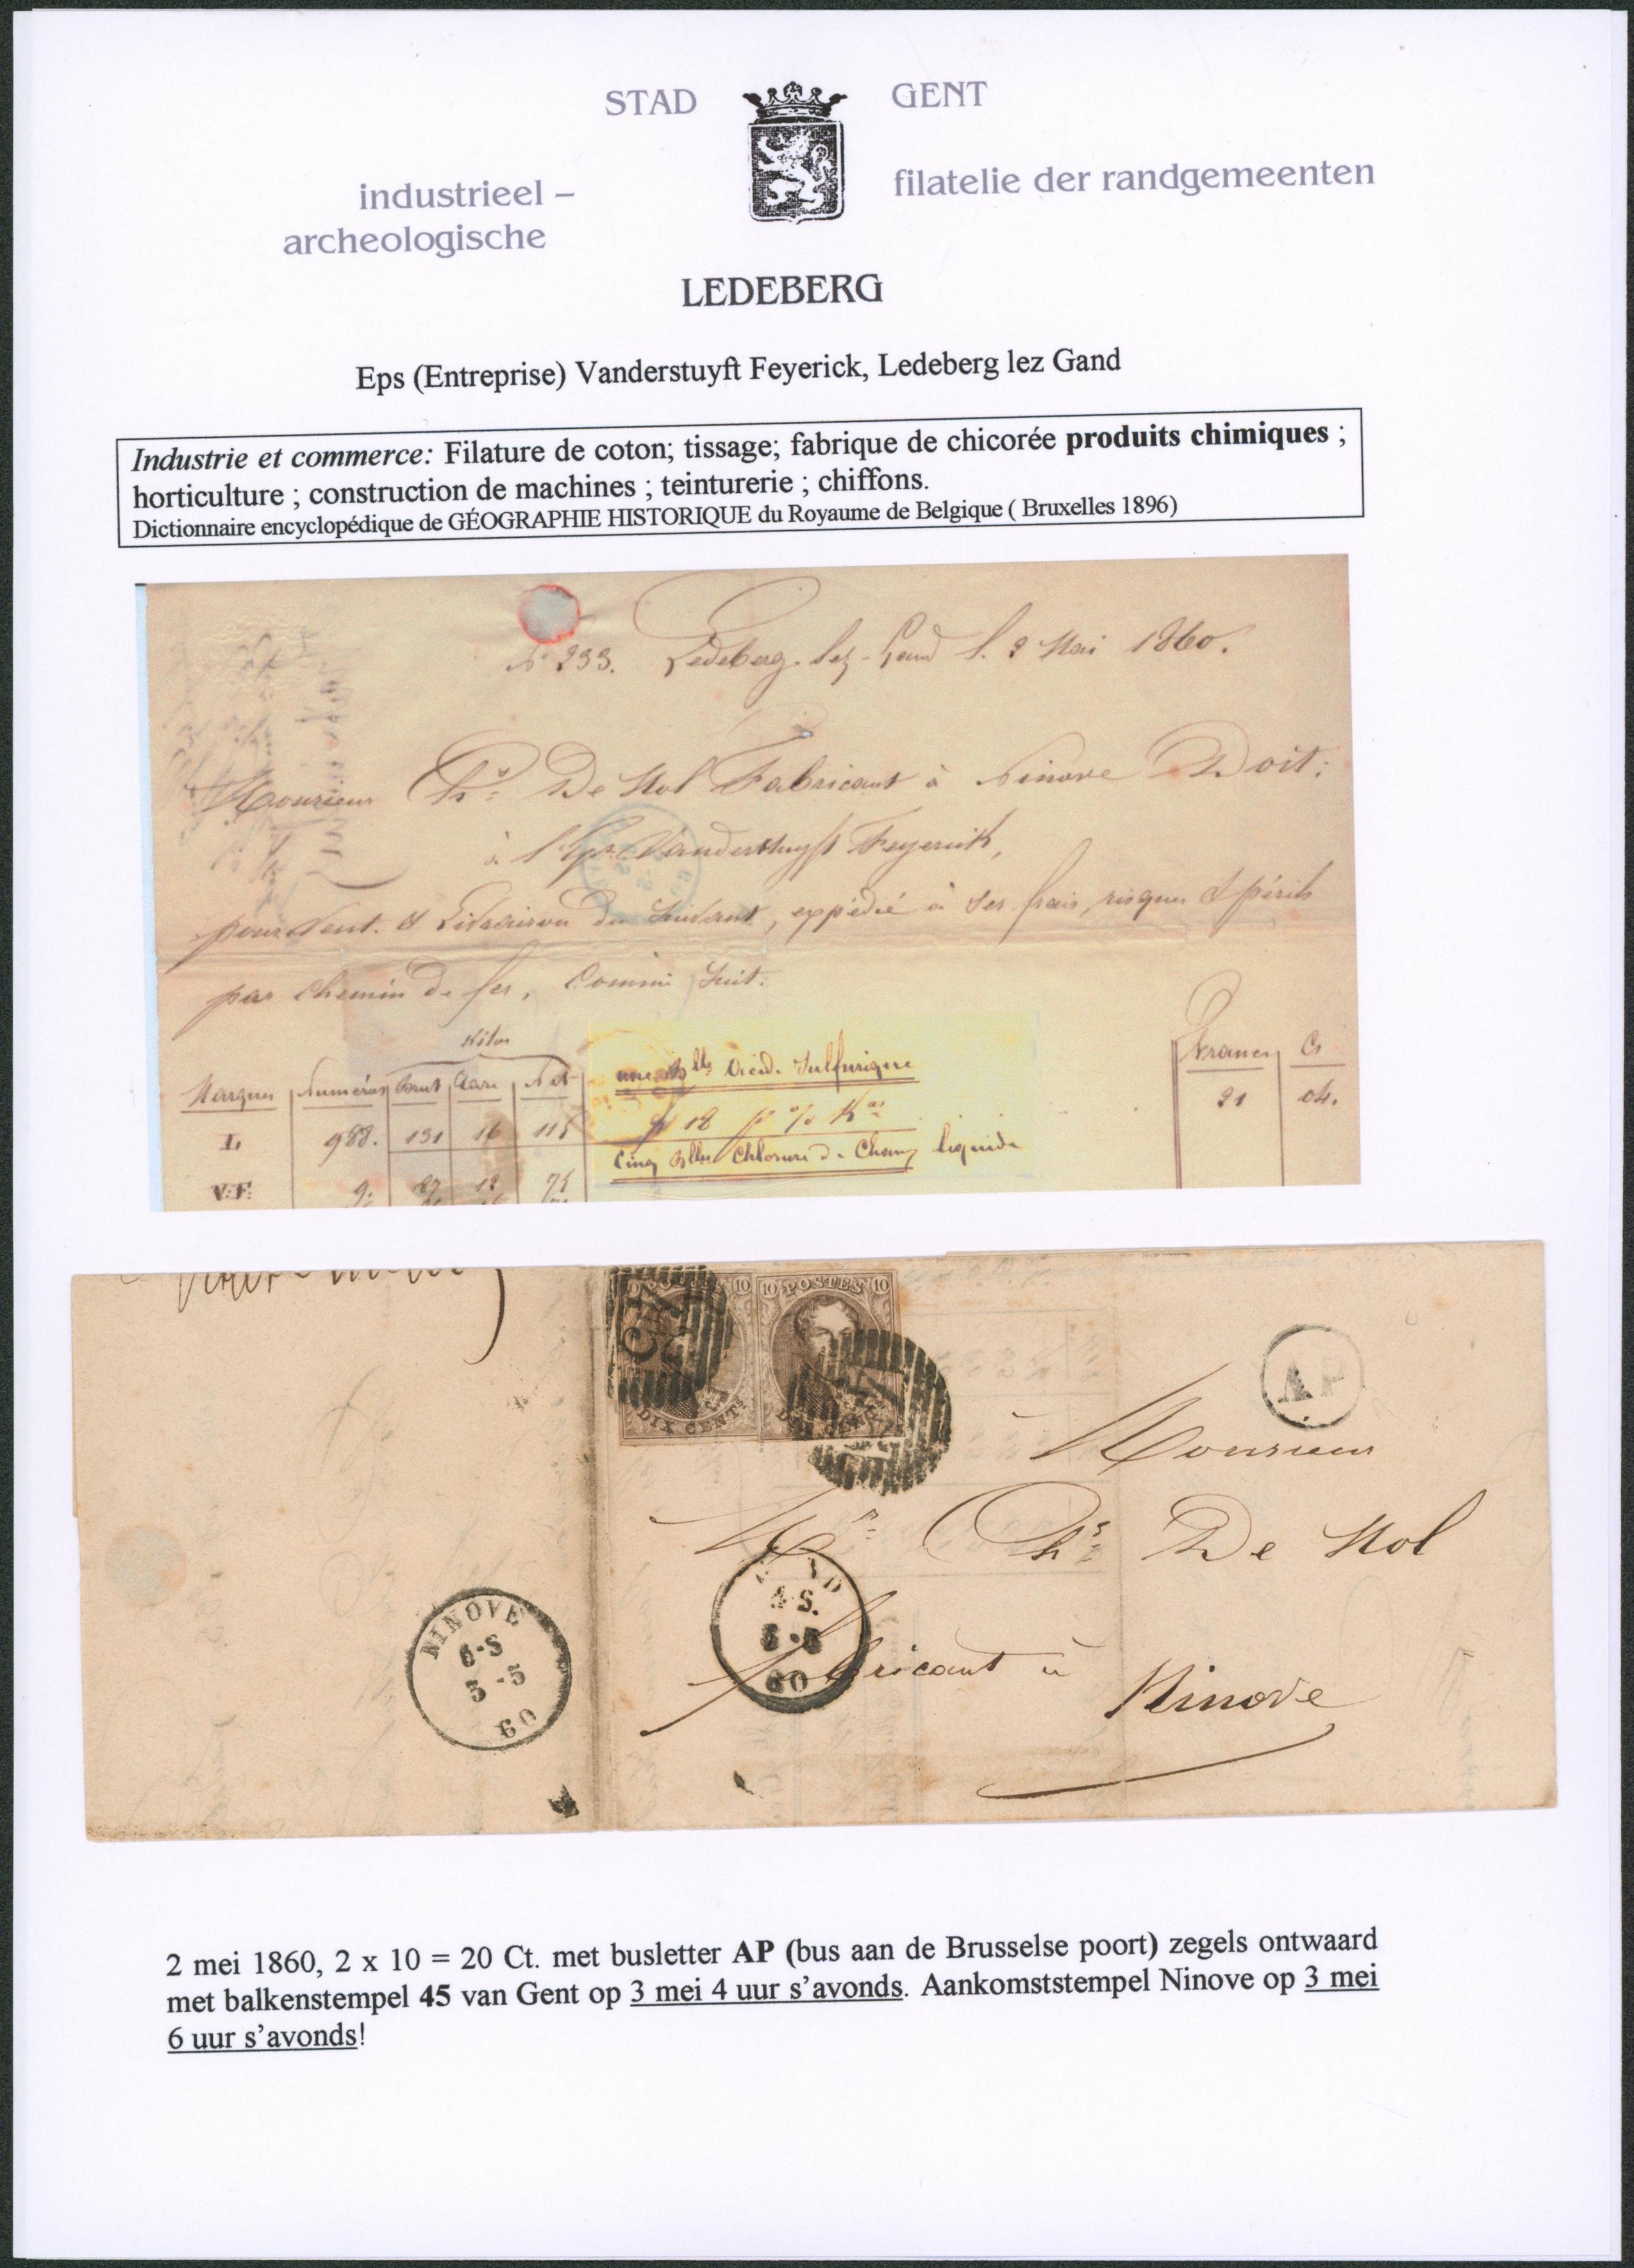 STAD GENT
industrieel – filatelie der randgemeenten
archeologische
LEDEBERG
Eps (Entreprise) Vanderstuyft Feyerick, Ledeberg lez Gand
Industrie et commerce: Filature de coton; tissage; fabrique de chicorée produits chimiques ;
horticulture ; construction de machines ; teinturerie ; chiffons.
Dictionnaire encyclopédique de GÉOGRAPHIE HISTORIQUE du Royaume de Belgique ( Bruxelles 1896)
Nº 233. Ledeberg-lez-Gand l. 2 Mai 1860.
Monsieur Chs De Mol Fabricant à Ninove Doit:
à Vanderstuyft Feyerick,
pour Vent. & Livraison du Suivant, expédié à ses frais, risques & périls
par Chemin de fer, Comme Suit:
Kilos
Marques Numéros Brut Tare Net une Blle Acid. Sulfurique Francs Cs
L. 988. 131 16 115 fr 18 p % Kos 21 04.
Cinq Blles Chlorure de Chaux liquide
V:F: 9. 87 12 75
10 POSTES 10
DIX CENTS
AP
Monsieur
Mr Chs De Mol
Fabricant à
Ninove
NINOVE
6-S
3-5
60
4-S.
60
2 mei 1860, 2 x 10 = 20 Ct. met busletter AP (bus aan de Brusselse poort) zegels ontwaard
met balkenstempel 45 van Gent op 3 mei 4 uur s’avonds. Aankomststempel Ninove op 3 mei
6 uur s’avonds!